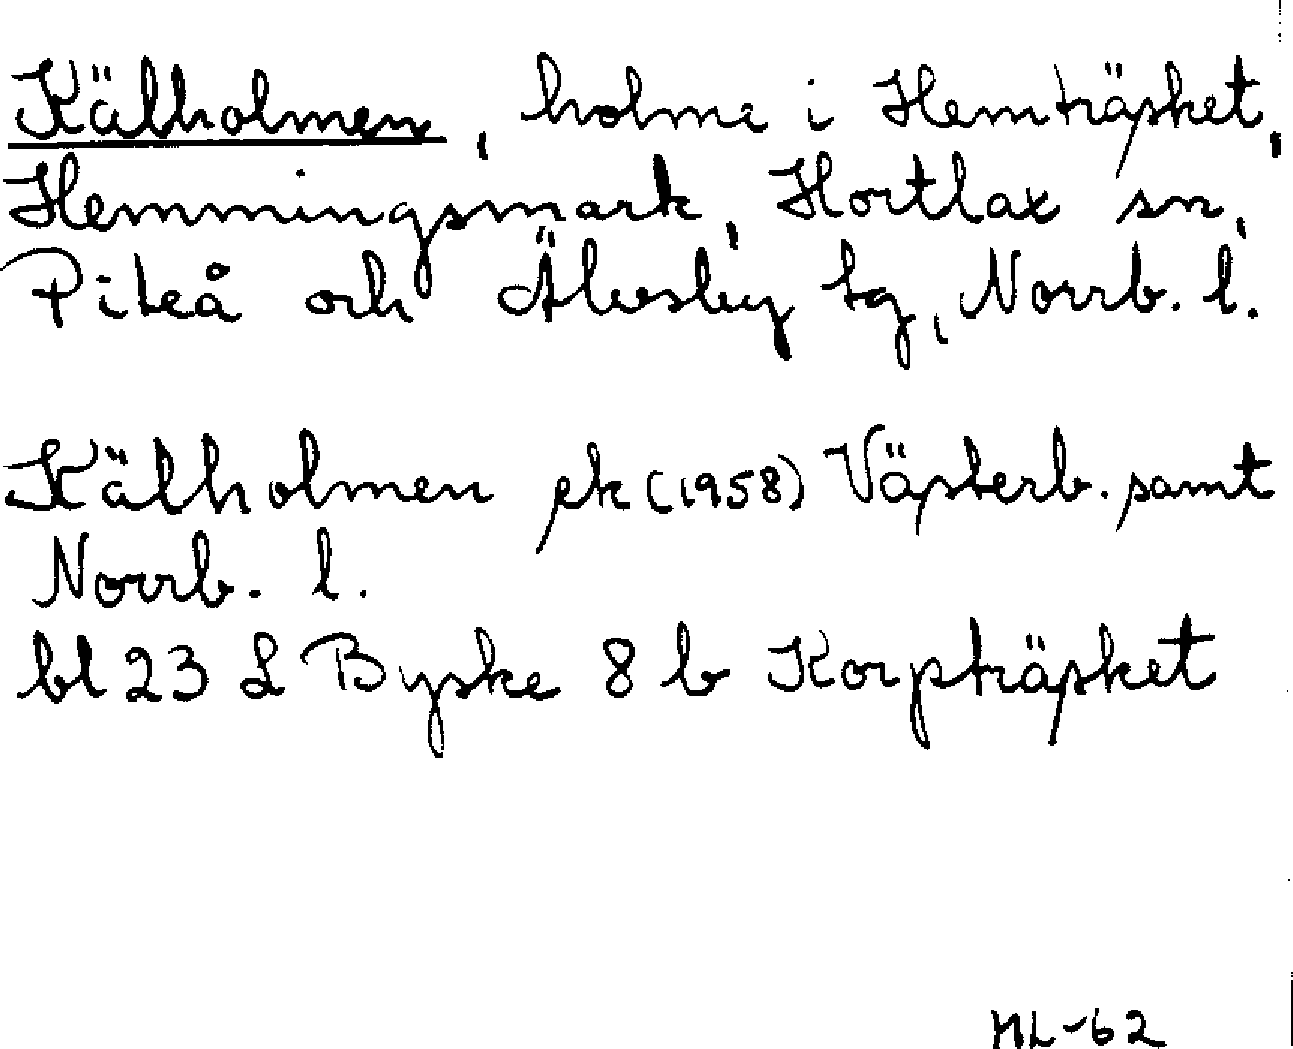 Kälholmen, holme i Hemträsket,
Hemmingsmark, Hortlax sn,
Piteå och Älvsby tg, Norrb. l.
Kälholmen ek (1958) Västerb. samt
Norrb. l.
bl 23 L Byske 8 b Korpträsket
ML-62